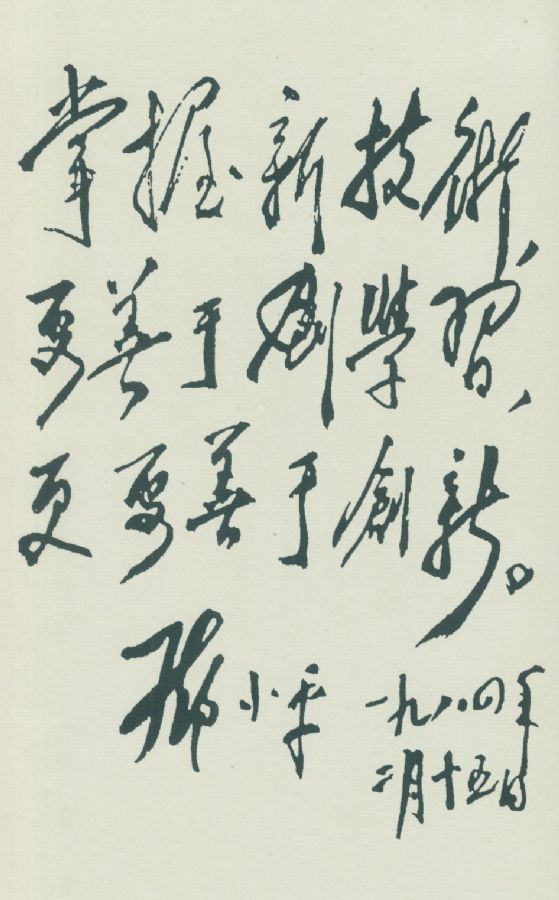 掌握新技術、
要善于學習、
更要善于創新。
鄧小平
一九八四年
二月十五日